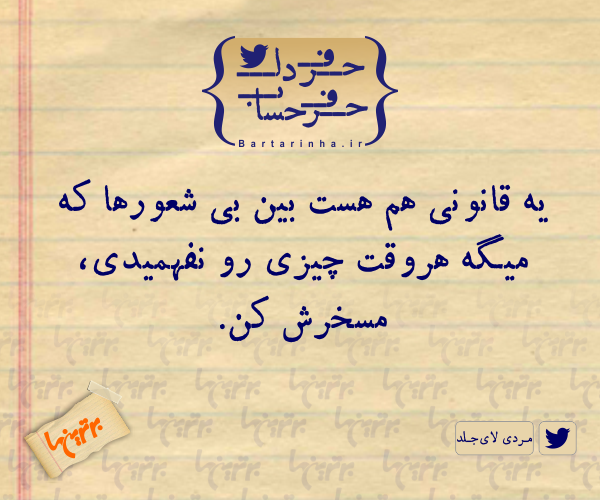 حرف دل
حرف حساب
Bartarinha.ir
یه قانونی هم هست بین بی شعورها که
میگه هروقت چیزی رو نفهمیدی،
مسخرش کن.
برترین‌ها
مردی لای‌جلد